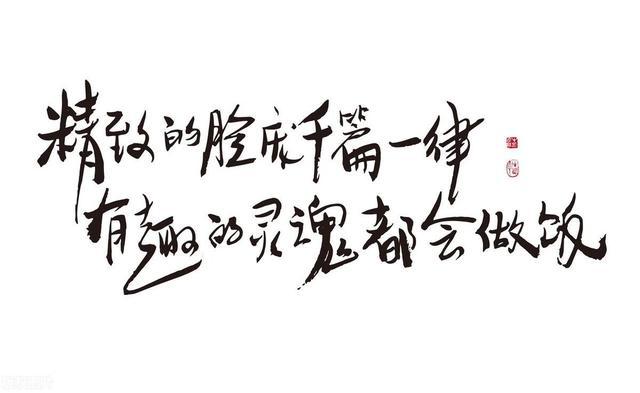 精致的脸庞千篇一律
有趣的灵魂都会做饭